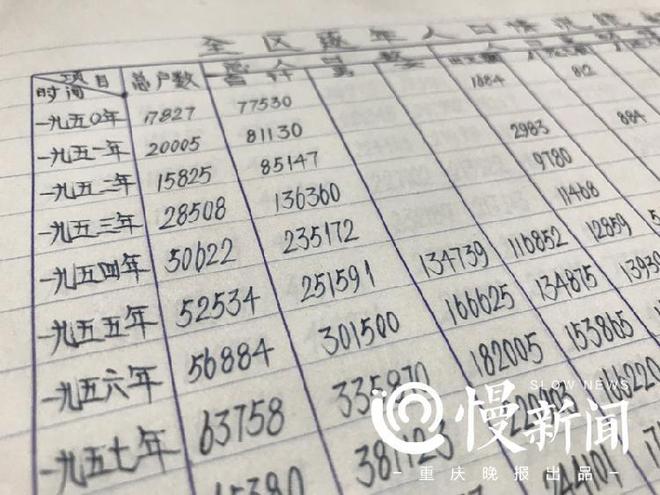 全区逐年人口情况统
项目 总户数 合计 男 女
时间
一九五〇年 17827 77530
一九五一年 20005 81130 1884 812
一九五二年 15825 85147 2983 884
一九五三年 28508 136360 9780
一九五四年 50622 235172 11468
一九五五年 52534 251591 134739 116852 12859
一九五六年 56884 301500 166625 134875 13930
一九五七年 63758 335870 182005 153865
381123
SLOW NEWS
慢新闻
-重庆晚报出品-